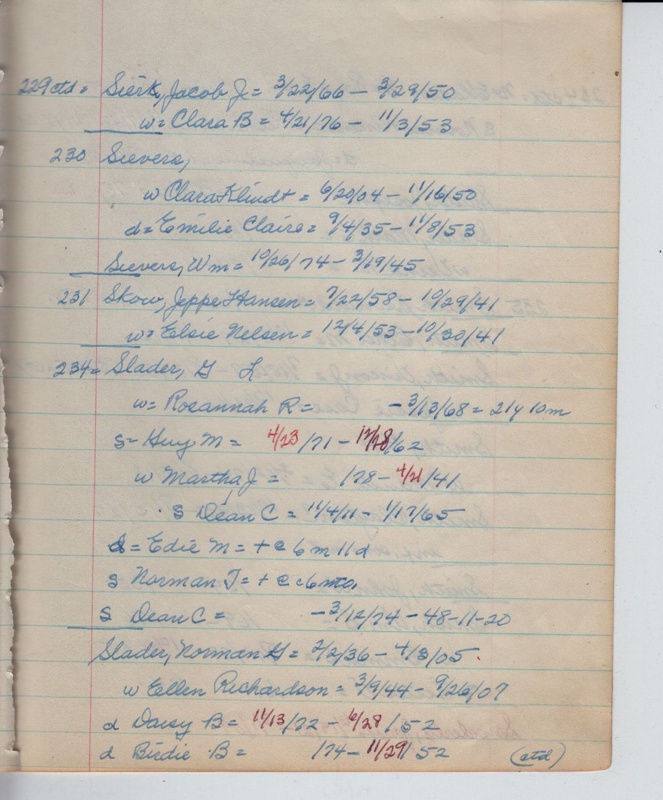 229 ctd = Sierk, Jacob J = 3/22/66 - 3/29/50
w = Clara B = 4/21/76 - 11/3/53
230 Sievers,
w Clara Klindt = 6/20/04 - 11/16/50
d = Emilie Claire = 9/4/35 - 11/8/53
Sievers, Wm = 10/26/74 - 3/19/45
231 Skow, Jeppe Hansen = 7/22/58 - 10/29/41
w = Elsie Nelsen = 12/4/53 - 10/30/41
234 = Slader, G L
w = Rosannah R = - 3/13/68 = 21y 10m
S = Huy M = 4/23/71 - 12/28/62
w Martha J = /78 - 4/21/41
S Dean C = 11/4/11 - 1/17/65
d = Edie M = + @ 6 m 11 d
S Norman T = + @ c 6 mos
S Dean C = - 3/12/74 - 48-11-20
Slader, Norman G = 2/2/36 - 4/3/05.
w Ellen Richardson = 3/9/44 - 9/26/07
d Daisy B = 11/13/72 - 6/28/52
d Birdie B = /74 - 11/29/52 (ctd)